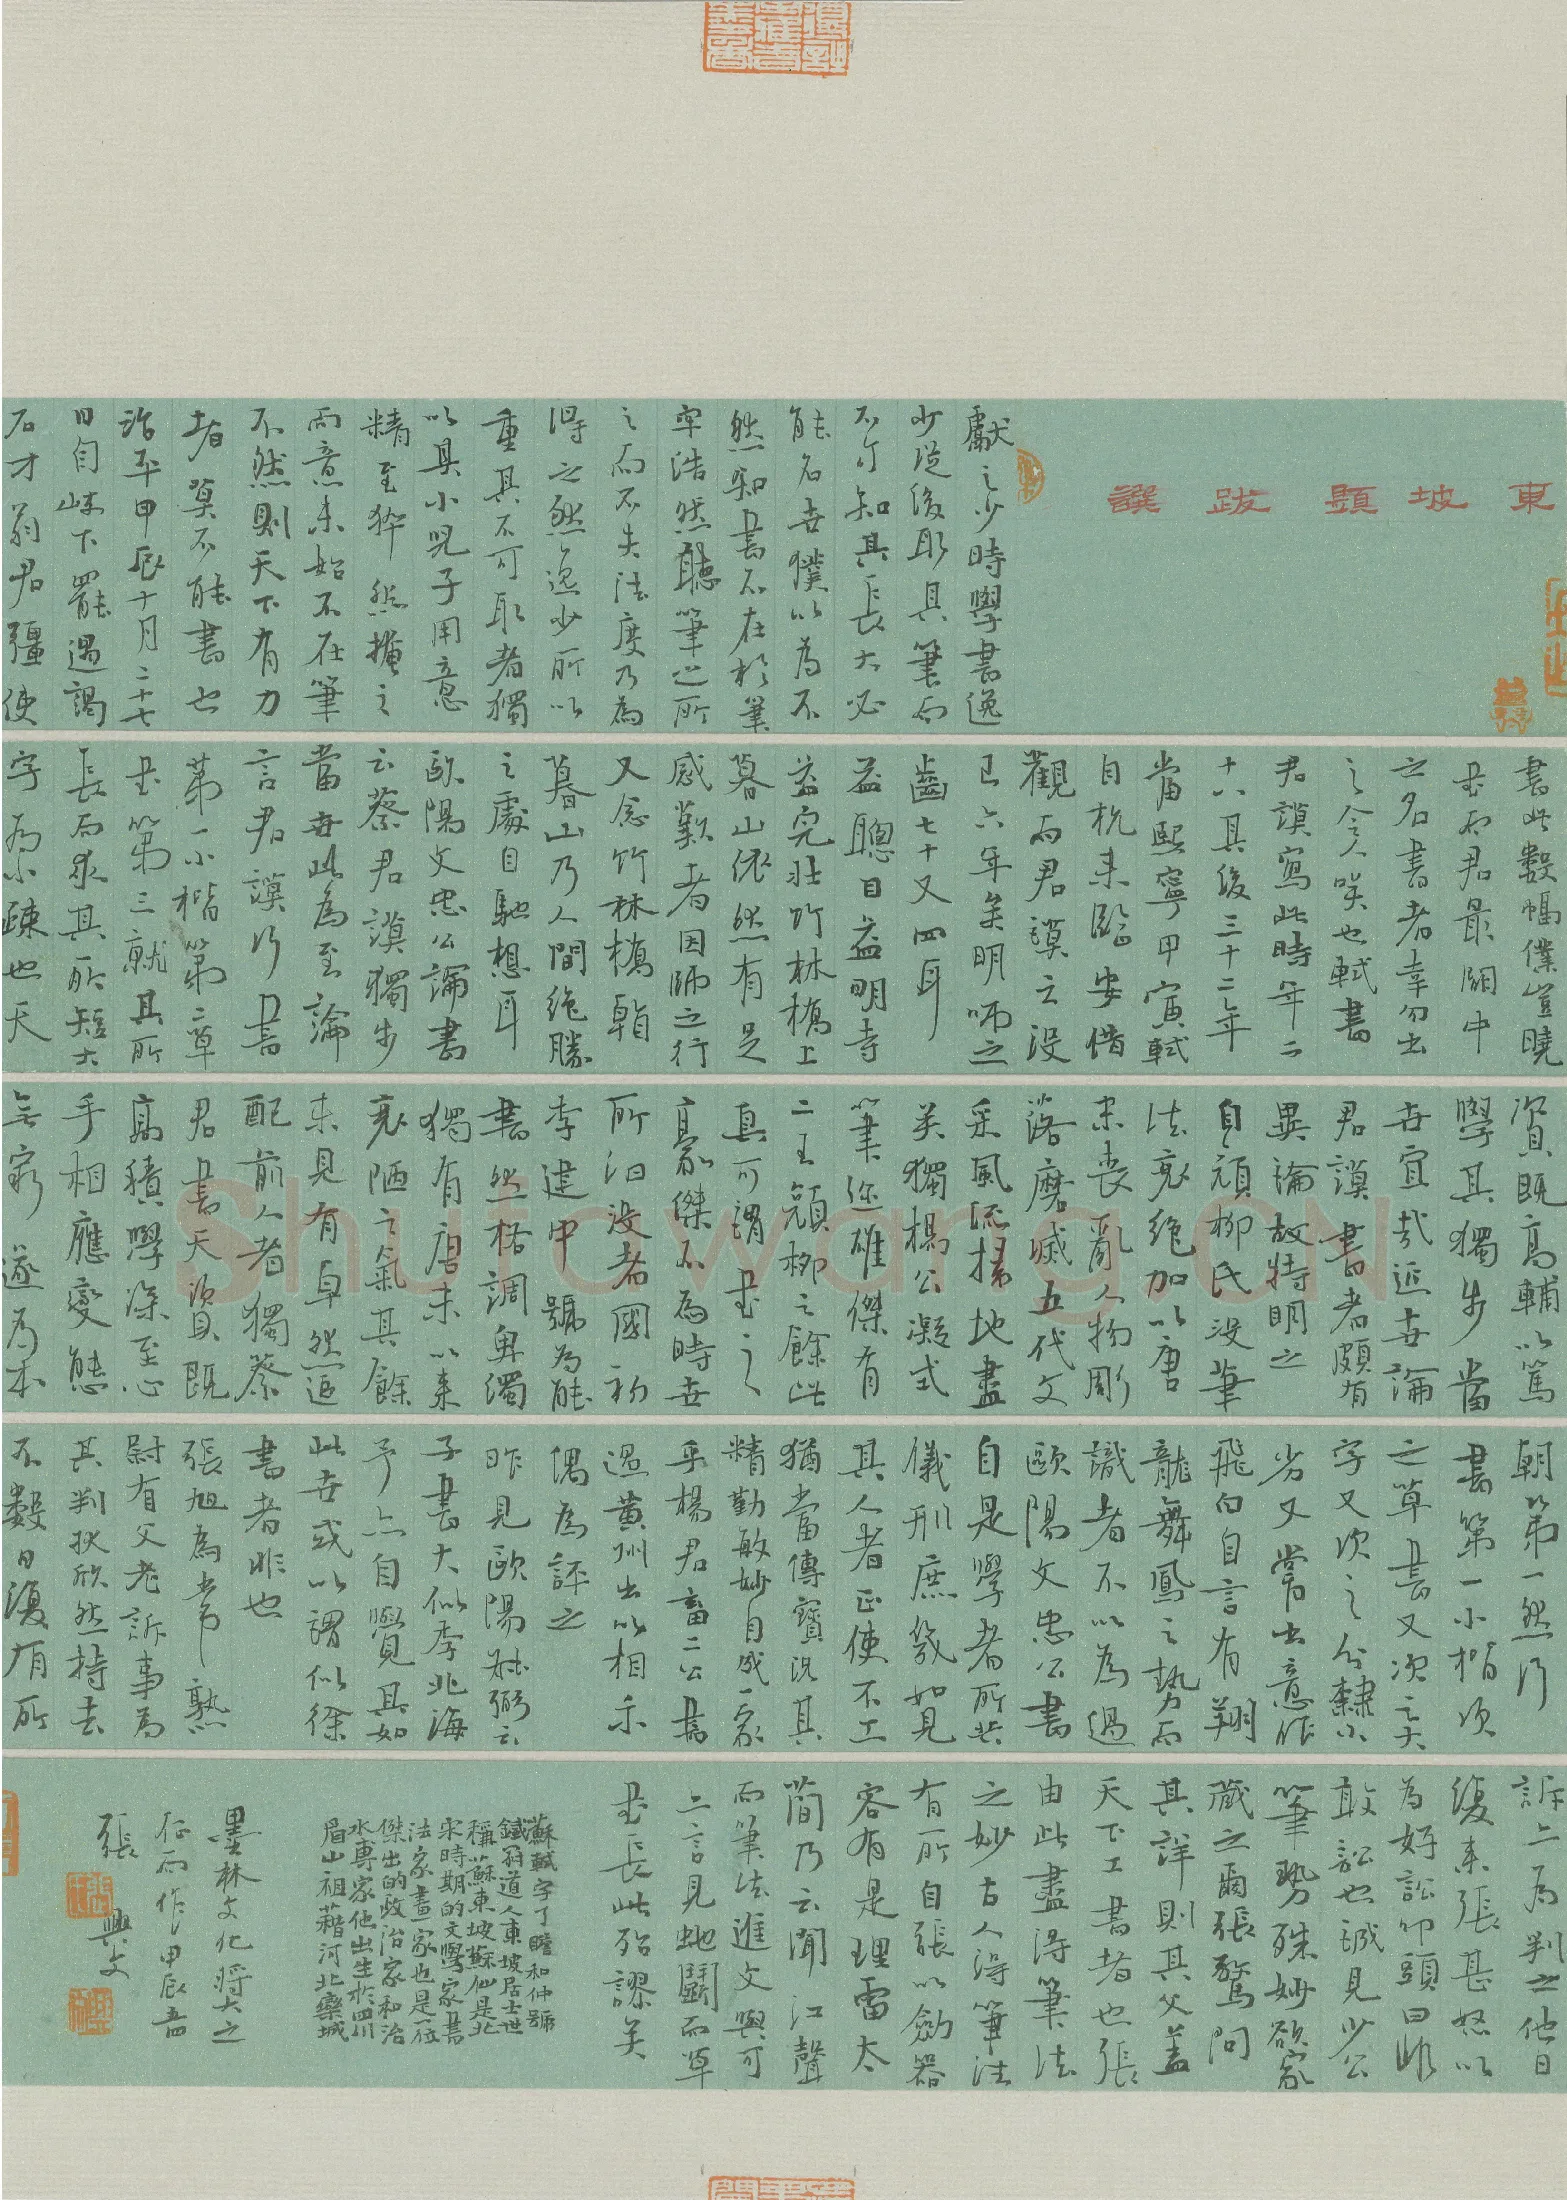 東坡題跋譔
獻之少時學書逸
少從後取其筆而
不可知其長大必
能名世僕以為不
然知書不在於筆
牢浩然聽筆之所
之而不失法度乃為
得之然逸少所以
重其不可取者獨
以其小兒子用意
精至猝然掩之
而意未始不在筆
不然則天下有力
者莫不能書也
治平甲辰十月二十七
日自岐下罷過謁
石才翁君彊使
書此數幅僕豈曉
書而君最關中
之名書者幸勿出
之令人笑也軾書
君謨寫此時年二
十八其後三十二年
當熙寧甲寅軾
自杭來臨安借
觀而君謨之沒
已六年矣明師之
齒七十又四耳
益聰目益明寺
益完壯竹林橋上
暮山依然有足
感歎者因師之行
又念竹林橋
暮山乃人間絕勝
之處自馳想耳
歐陽文忠公論書
云蔡君謨獨步
當世此為至論
言君謨行書
第一小楷第二草
書第三就其所
長而求其所短大
字為小疎也天
資既高輔以篤
學其獨步當
世宜哉近世論
君謨書者頗有
異論故特明之
自顏柳氏沒筆
法衰絕加以唐
末喪亂人物彫
落磨滅五代文
采風流掃地盡
矣獨楊公凝式
筆迹雄傑有
二王顏柳之餘此
真可謂書之
豪傑不為時世
所汩没者國初
李建中號為能
書然格調卑濁
獨有唐末以來
衰陋之氣其餘
未見有卓然追
配前人者獨蔡
君書天資既
高積學深至心
手相應變態
無窮遂為本
朝第一然行
書第一小楷次
之草書又次之大
字又次之分隸小
劣又嘗出意作
飛白自言有翔
龍舞鳳之勢而
識者不以為過
歐陽文忠公書
自是學者所共
儀刑庶幾如見
其人者正使不工
猶當傳寶況其
精勤敏妙自成一家
乎楊君畜二公書
過黃州出以相示
偶為評之
昨見歐陽叔弼云
子書大似李北海
予亦自覺其如
此世或以謂似徐
書者非也
張旭為常熟
尉有父老訴事為
其判狀欣然持去
不數日復有所
訴亦為判之他日
復來張甚怒以
為好訟叩頭曰非
敢訟也誠見少公
筆勢殊妙欲家
藏之爾張驚問
其詳則其父蓋
天下工書者也張
由此盡得筆法
之妙古人得筆法
有所自張以劍器
容有是理雷太
簡乃云聞江聲
而筆法進文與可
亦言見蛇鬭而草
書長此殆謬矣
蘇軾字子瞻和仲號
鐵冠道人東坡居士世
稱蘇東坡蘇仙是北
宋時期的文學家書
法家畫家也是一位
傑出的政治家和治
水專家他出生於四川
眉山祖藉河北欒城
墨林文化將大之
征而作甲辰春
張興文
Shufawang.CN